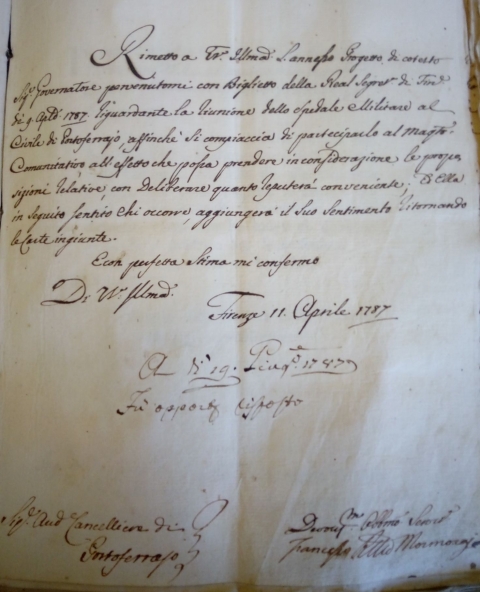 Rimetto a Vs. Illma. l'annesso Progetto di cotesto
Sigr. Governatore pervenutomi con Biglietto della Real Segret. di Finze.
di 9. Aple. 1787. riguardante la riunione dello Spedale Militare al
Civile di Portoferrajo, affinchè si compiaccia di parteciparlo al Magto.
Comunitativo all'effetto che possa prendere in considerazione le propo-
sizioni relative con deliberare quanto reputerà conveniente; Ed Ella
in seguito sentito chi occorre, aggiungerà il suo sentimento ritornando
le Carte ingiunte.
E con perfetta stima mi confermo
Di Vs. Illma.
Firenze 11. Aprile 1787
A 19. 1787
Fù risposto
Sigr. Aud. Cancelliere di
Portoferrajo
Devmo. Obbmo. Servre.
Francesco